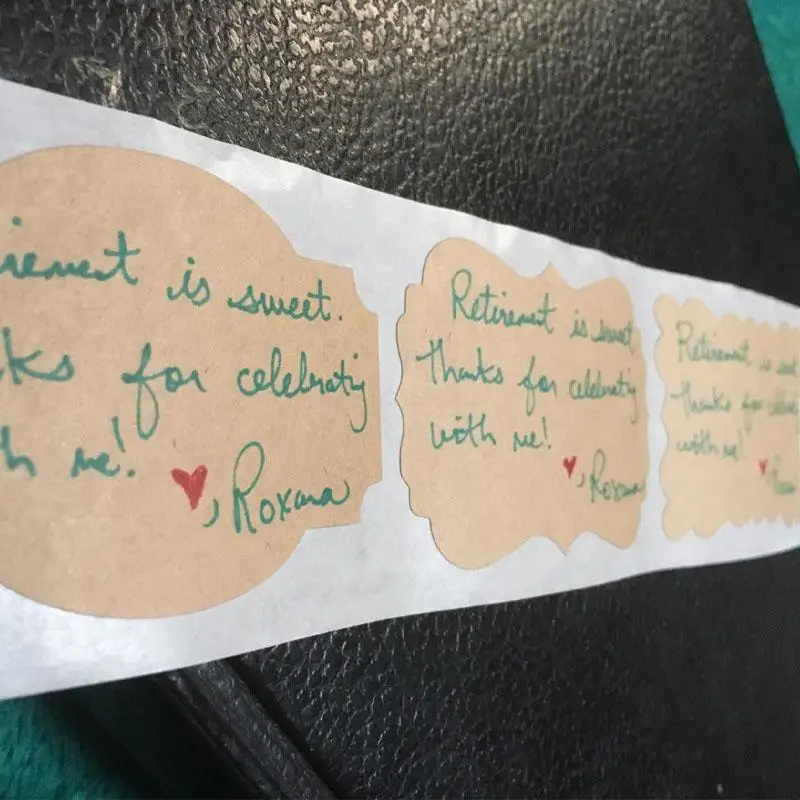 irement is sweet.
ks for celebrating
h me!
♥, Roxana
Retirement is sweet
Thanks for celebrating
with me!
♥, Roxana
Retirement is
Thanks for
with me!
♥,